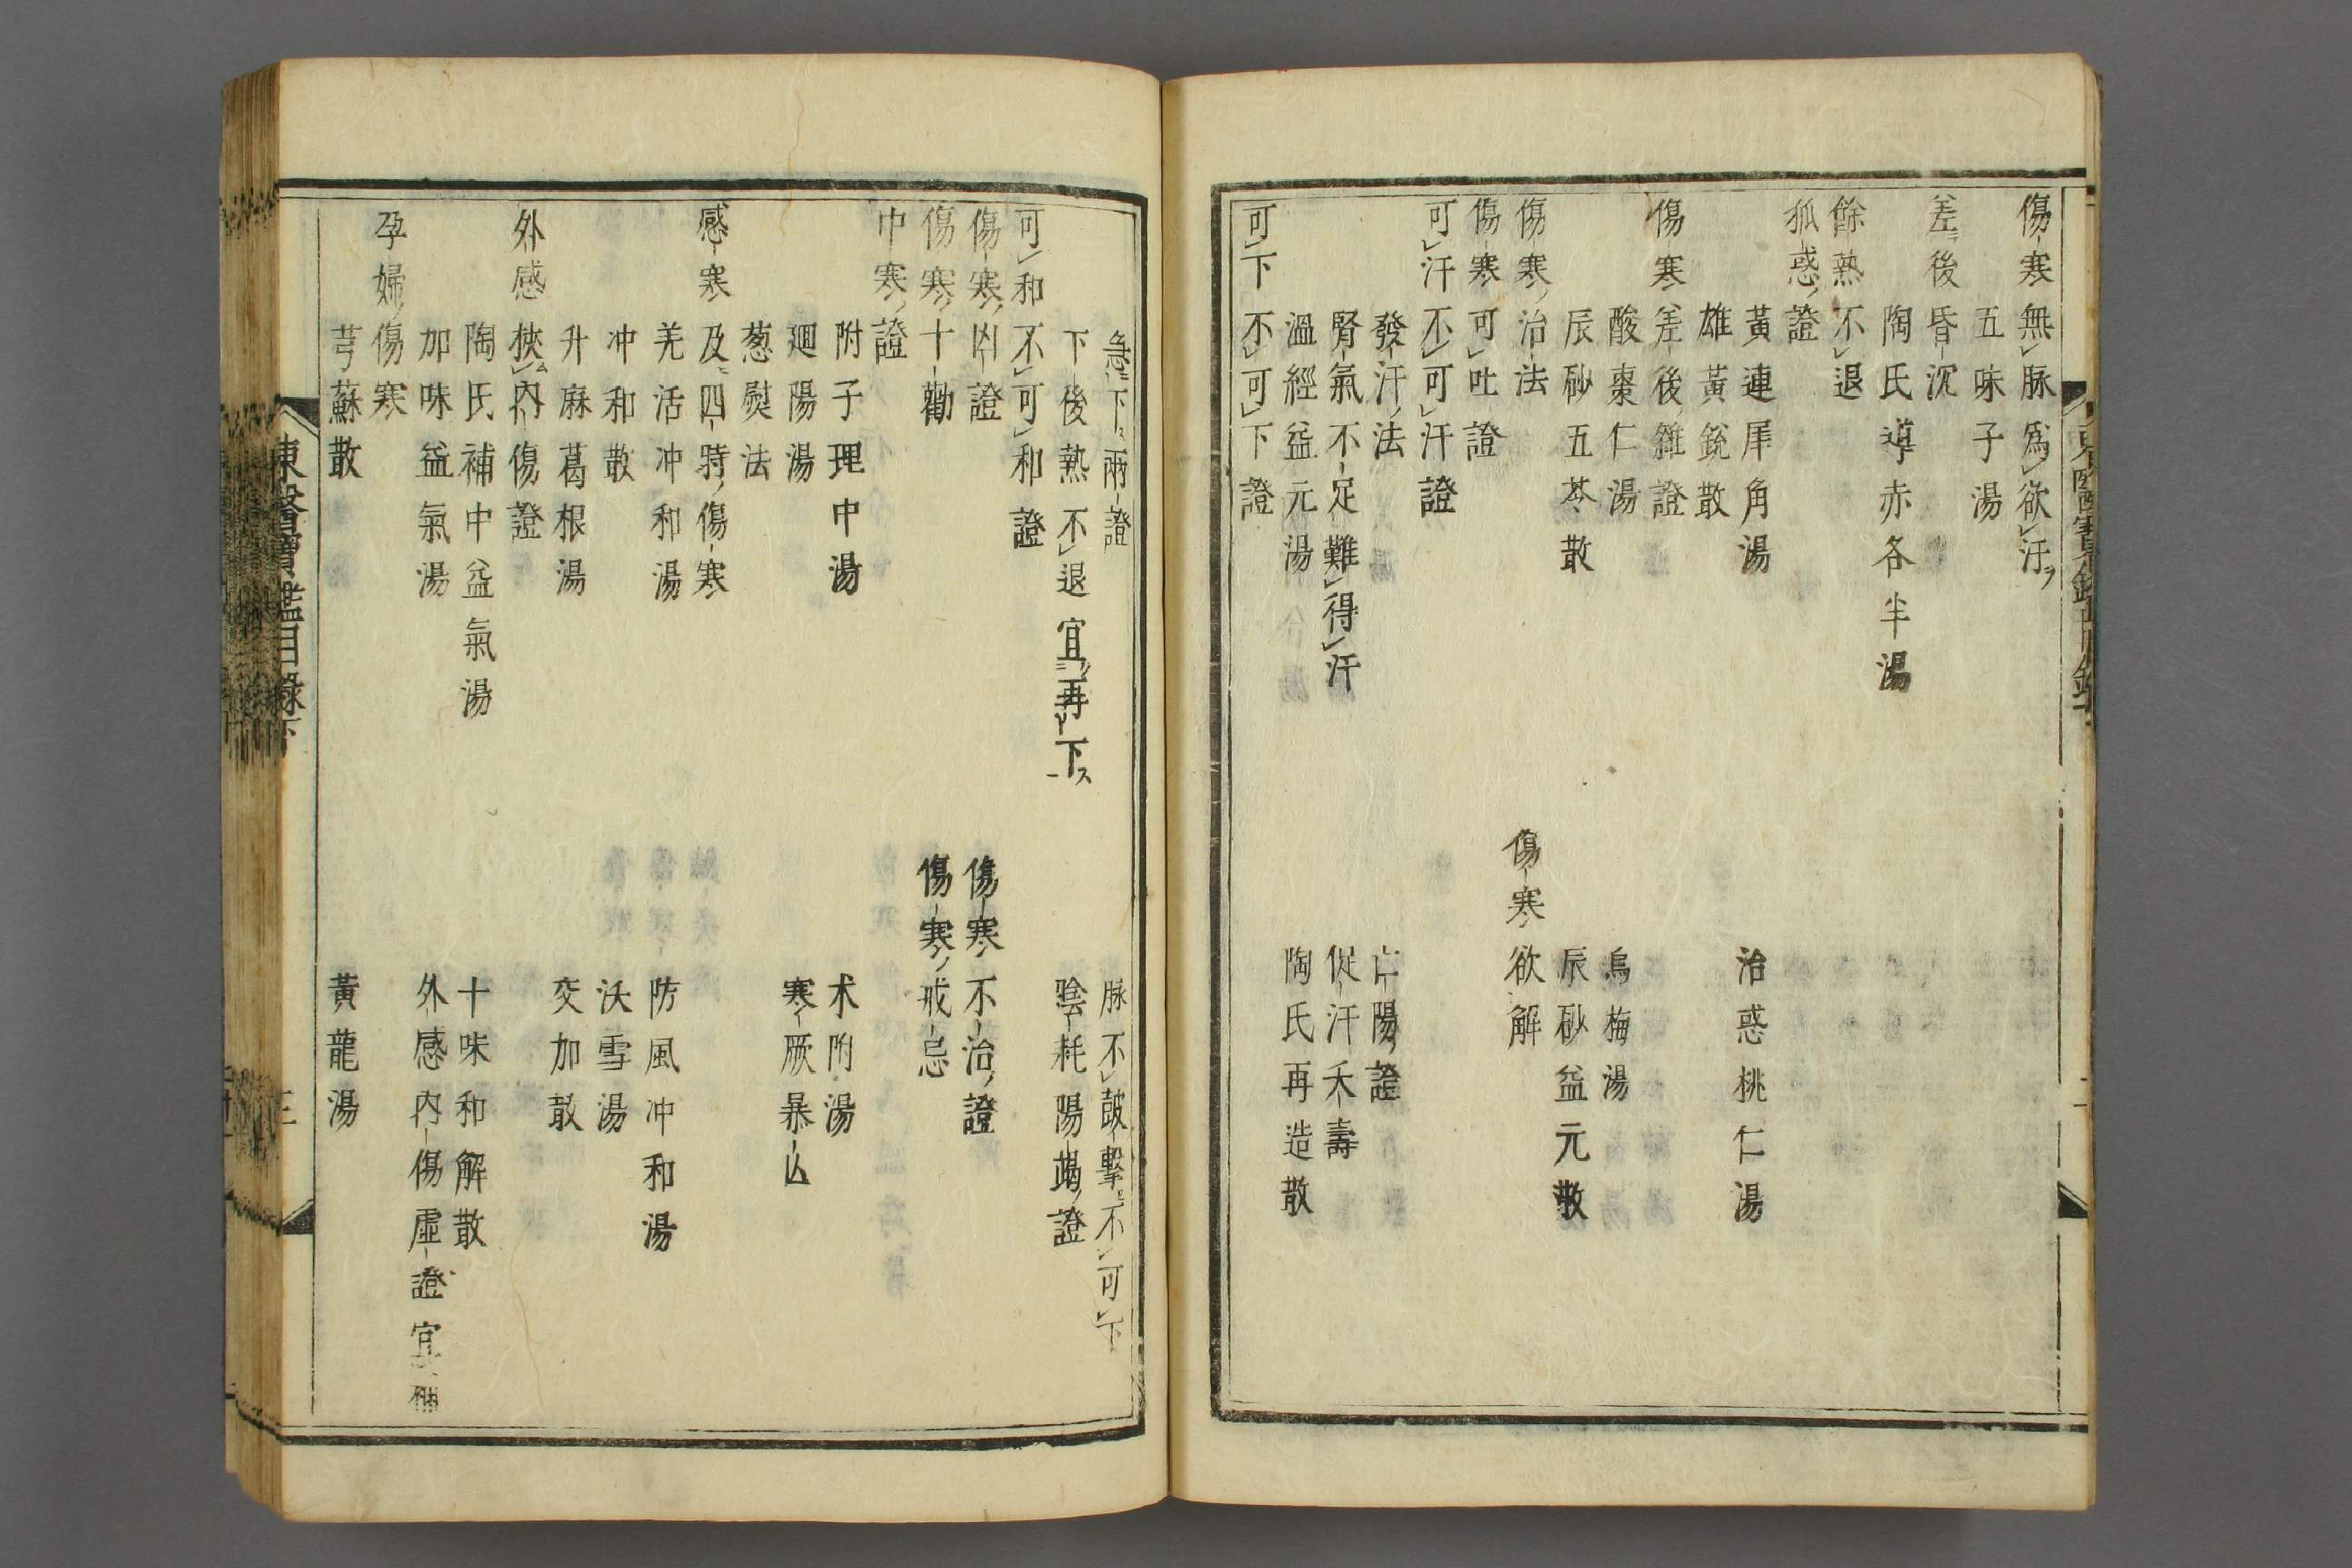 傷寒無脉爲欲汗ヲ
五味子湯
差後昏沉
陶氏導赤各半湯
餘熱不退
狐惑證
黃連犀角湯
治惑桃仁湯
雄黃銳散
傷寒差後雜證
酸棗仁湯
烏梅湯
辰砂五苓散
辰砂益元散
傷寒治法
傷寒欲解
傷寒可吐證
可汗不可汗證
發汗法
亡陽證
腎氣不足難得汗
促汗夭壽
溫經益元湯
陶氏再造散
可下不可下證
急下兩證
脉不鼓擊不可下
下後熱不退宜再下
陰耗陽竭證
可和不可和證
傷寒凶證
傷寒不治證
傷寒十勸
傷寒戒忌
中寒證
附子理中湯
术附湯
廻陽湯
寒厥暴亾
葱熨法
感寒及四時傷寒
羌活冲和湯
防風冲和湯
冲和散
沃雪湯
升麻葛根湯
交加散
外感挾內傷證
陶氏補中益氣湯
十味和解散
加味益氣湯
外感內傷虛證宜補
孕婦傷寒
芎蘇散
黃龍湯
東醫寶鑑目錄下